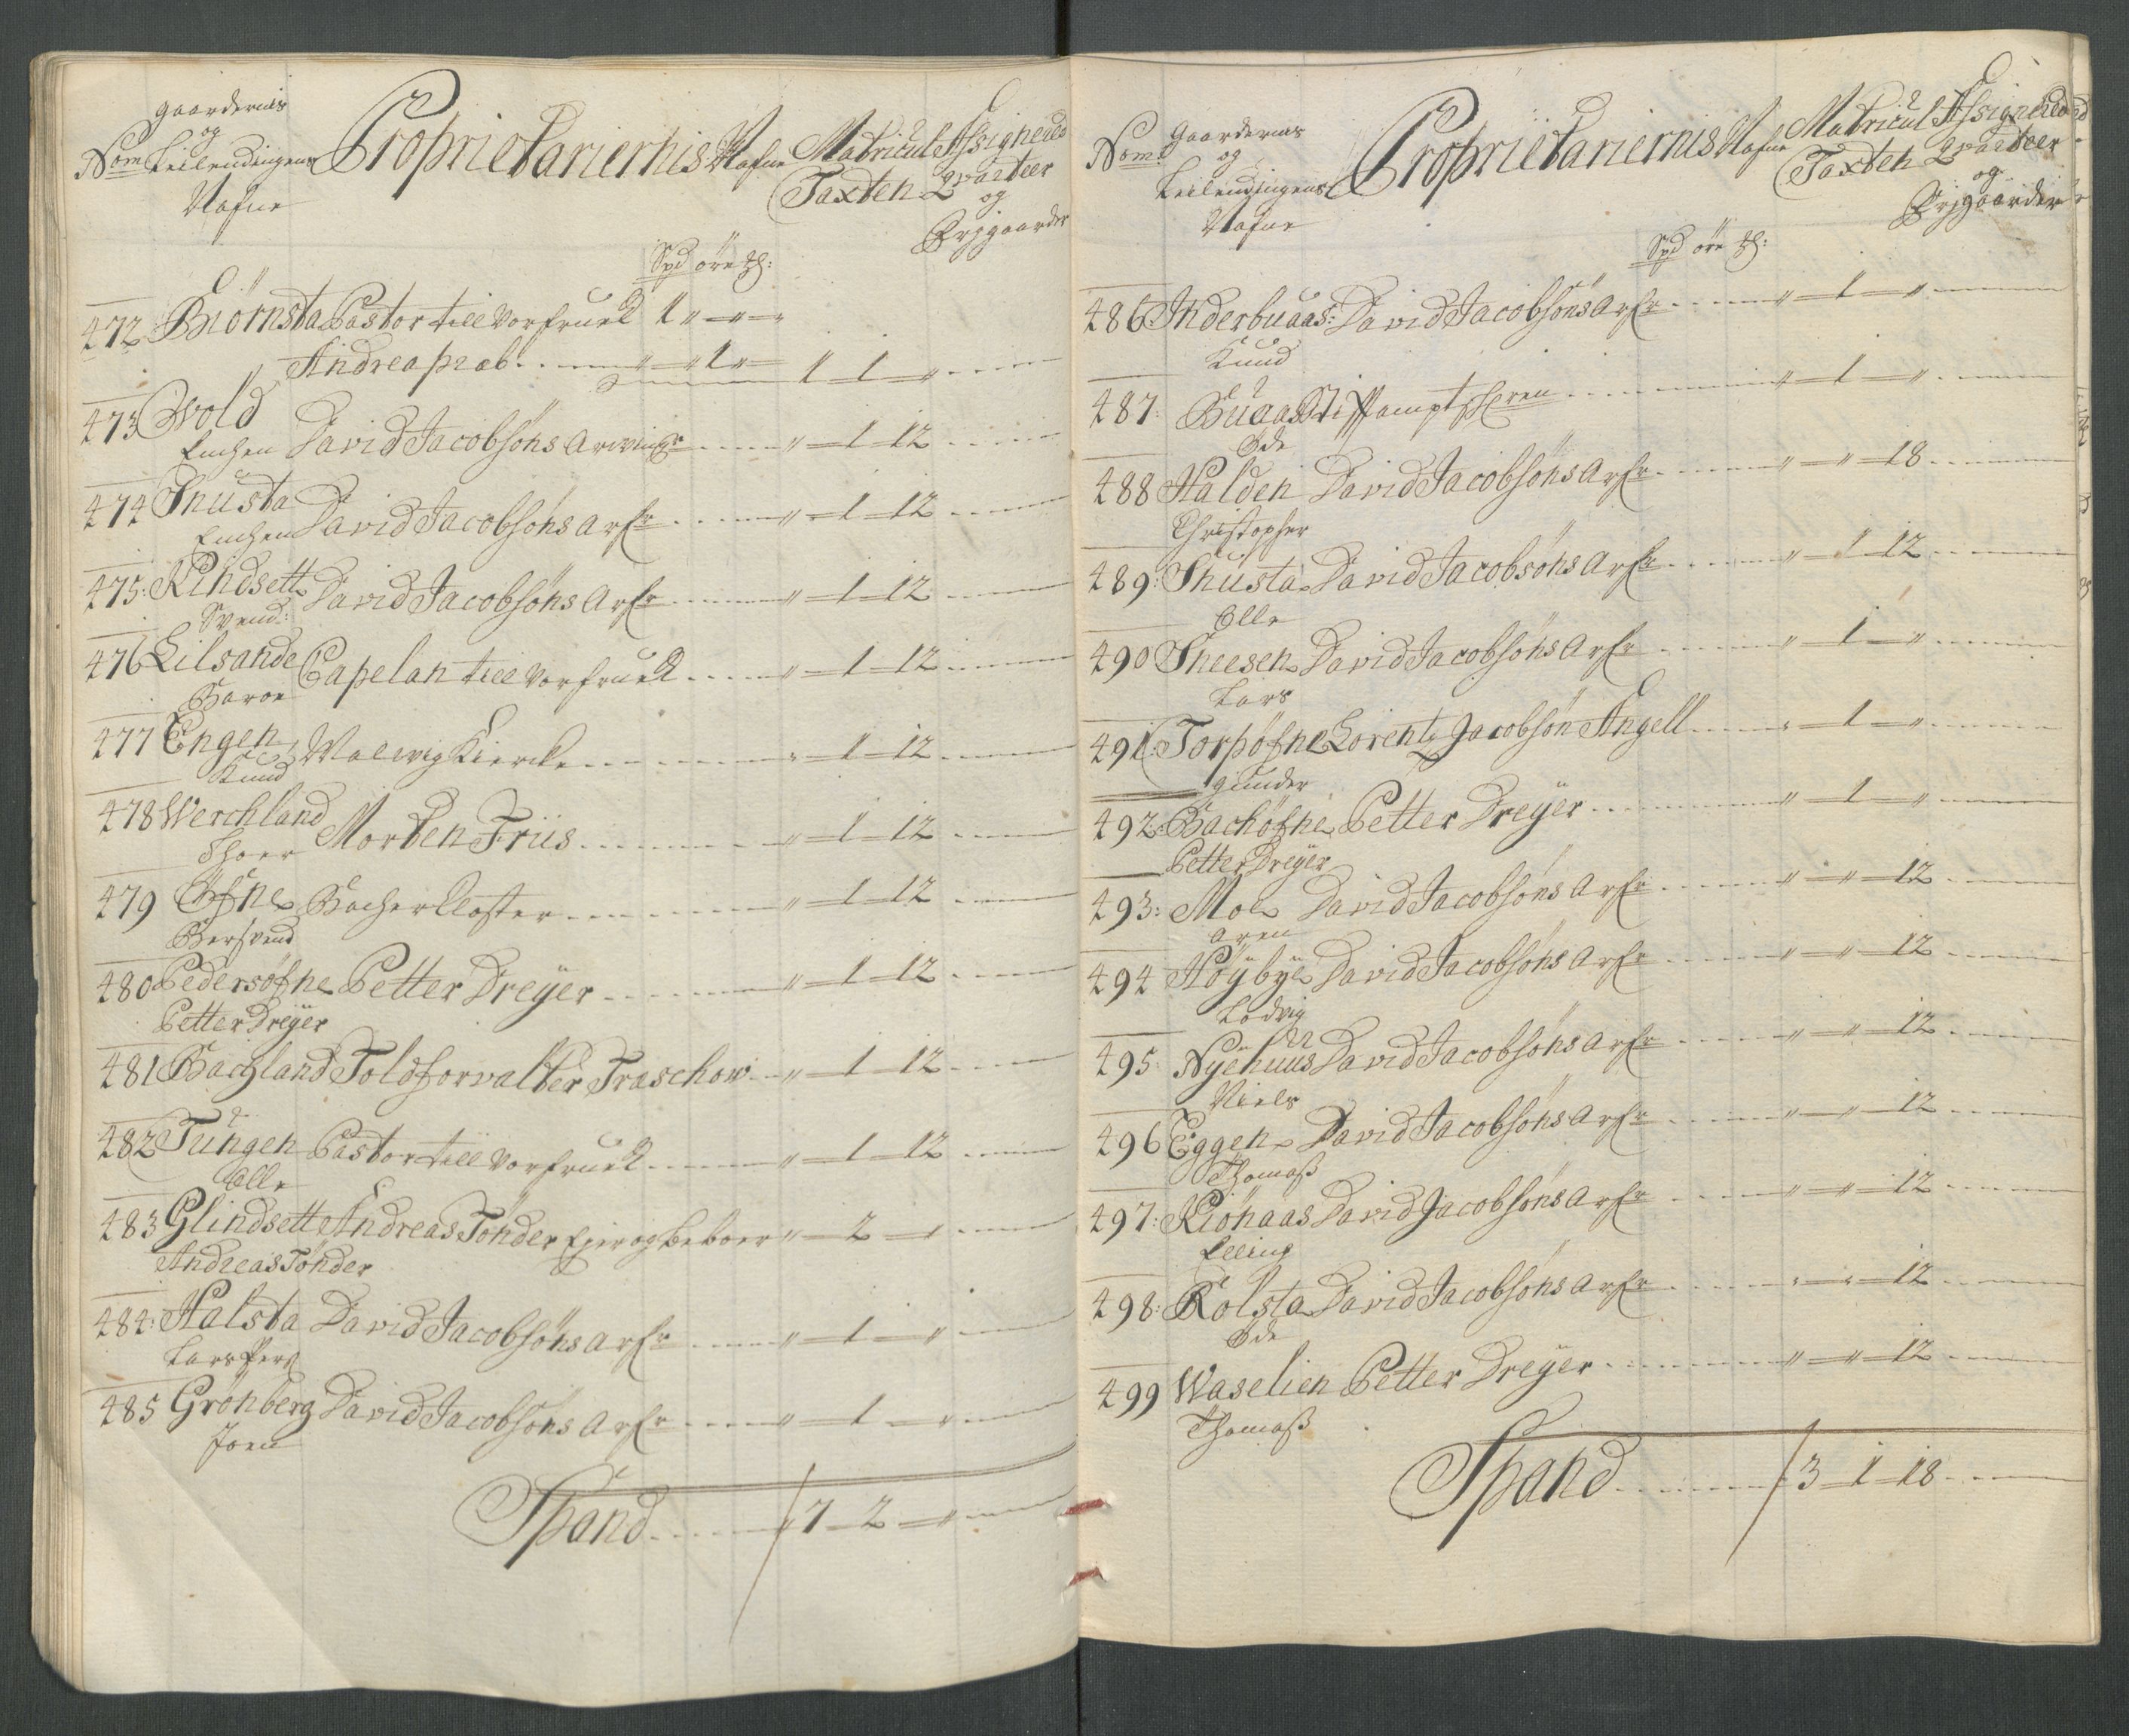 Gaardernis
og
Nom: Leilendingens Proprietariernis Nafne Matricul Assignerede
Nafne Taxten Qvarteer
og
Ørjgaarder
Spd øre
472 Biörnsta Pastor till Vorfruek 1 " — " — "
Andrea præb. " — 1 " — 1 1 "
473 Wold
Enchen David Jacobsöns Arvinger " 1 12
474 Snusta
Enchen David Jacobsöns Arfr " 1 12
475: Rindsett David Jacobsöns Arfr " 1 12
Svend:
476 Lilsande Capelan till Vorfruek " 1 12
Baroe
477 Engen Malwig Kiercke " 1 12
Knud
478 Werchland Morten Friis " 1 12
Thoer
479 Öfne Backer Closter " 1 12
Bersvend
480 Pedersöfne Petter Dreÿer " 1 12
Petter Dreÿer
481 Bachland Toldforvalter Traschow " 1 12
482 Tungen Pastor till Vorfruek " 1 12
Olle
483 Glindsett Andreas Tönder Ejer og beboer " 2 "
Andreas Tönder
484: Halsta David Jacobsöns Arfr " 1 "
Lars Pers
485 Grönberg David Jacobsöns Arfr " 1 "
Joen
Spand 7 2 "
Gaardernis
Nom: og
Leilendingens Proprietariernis Nafne Matricul Assignerede
Nafne Taxten Qvarteer
og
Ørjgaarder
Spd øre
486 Inderbuaas: David Jacobsöns Arfr " 1 "
Knud
487: Buaas Stiftamptschren " 1 "
Öde
488 Halden David Jacobsöns Arfr " " 18
Christopher
489: Snusta David Jacobsöns Arfr " 1 12
Olle
490 Sneesen David Jacobsöns Arfr " 1 "
Lars
491: Torpöfne Lorentz Jacobsön Angell " 1 "
Gunder
492: Bachöfne Petter Dreÿer " 1 "
Petter Dreÿer
493: Moe David Jacobsöns Arfr " " 12
Aren
494 Höÿbÿe David Jacobsöns Arfr " " 12
Lodvig
495: Nÿehuus David Jacobsöns Arfr " " 12
Niels
496 Eggen David Jacobsöns Arfr " " 12
Thomass
497: Kiönaas David Jacobsöns Arfr " " 12
Elling
498: Rolsta David Jacobsöns Arfr " " 12
Öde
499 Waselien Petter Dreÿer " " 12
Thomass
Spand 3 1 18